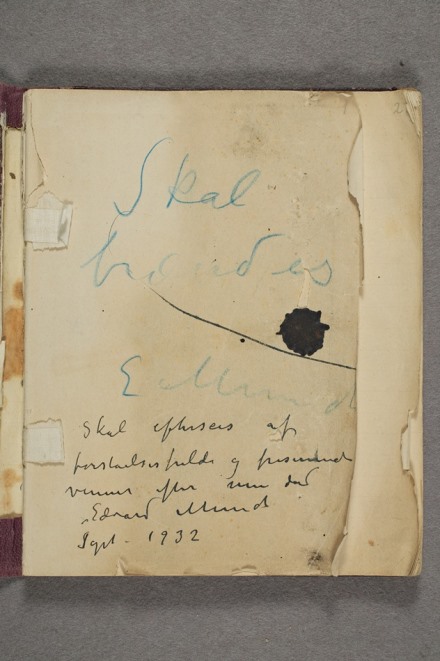 Skal
brændes
E Munch
Skal efterses af
forstaaelsesfulde og frisinnede
venner efter min død
Edvard Munch
Sept. 1932